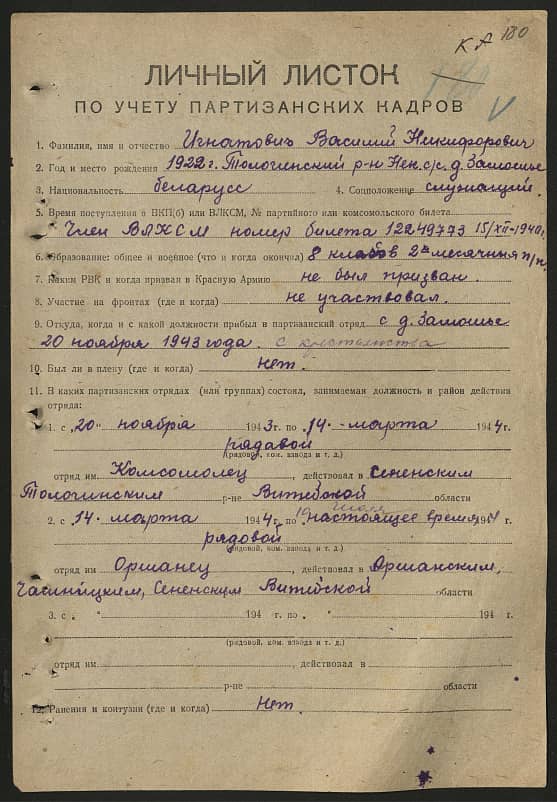 К А 180
ЛИЧНЫЙ ЛИСТОК
ПО УЧЕТУ ПАРТИЗАНСКИХ КАДРОВ
1. Фамилия, имя и отчество Игнатович Василий Никифорович
2. Год и место рождения 1922 г. Тологинский р-н Нек. с/с. д. Замошье
3. Национальность беларусс 4. Соцположение служащий.
5. Время поступления в ВКП(б) или ВЛКСМ, № партийного или комсомольского билета
Член ВЛКСМ номер билета 12249773 15/XII-1940г.
6. Образование: общее и военное (что и когда окончил) 8 классов 2х месячния п/п.
7. Каким РВК и когда призван в Красную Армию не был призван.
8. Участие на фронтах (где и когда) не участвовал.
9. Откуда, когда и с какой должности прибыл в партизанский отряд с д. Замошье
20 ноября 1943 года. с крестьянства
10. Был ли в плену (где и когда) нет.
11. В каких партизанских отрядах (или группах) состоял, занимаемая должность и район действия
отряда:
1. с „20" ноября 1943 г. по „14 - марта 1944 г.
рядавой
(рядовой, ком. взвода и т. д.)
отряд им. Комсомолец, действовал в Сененским
Тологинским р-не Витебской области
2. с „14" марта 1944 г. по настоящее время 1944 г.
июля
рядовой
(рядовой, ком. взвода и т. д.)
отряд им Оршанец, действовал в Оршанским,
Часницким, Сененским Витебской области
3. с „ " 194 г. по „ " 194 г.
(рядовой, ком. взвода и т. д.)
отряд им., действовал в
р-не области
12. Ранения и контузии (где и когда) Нет.